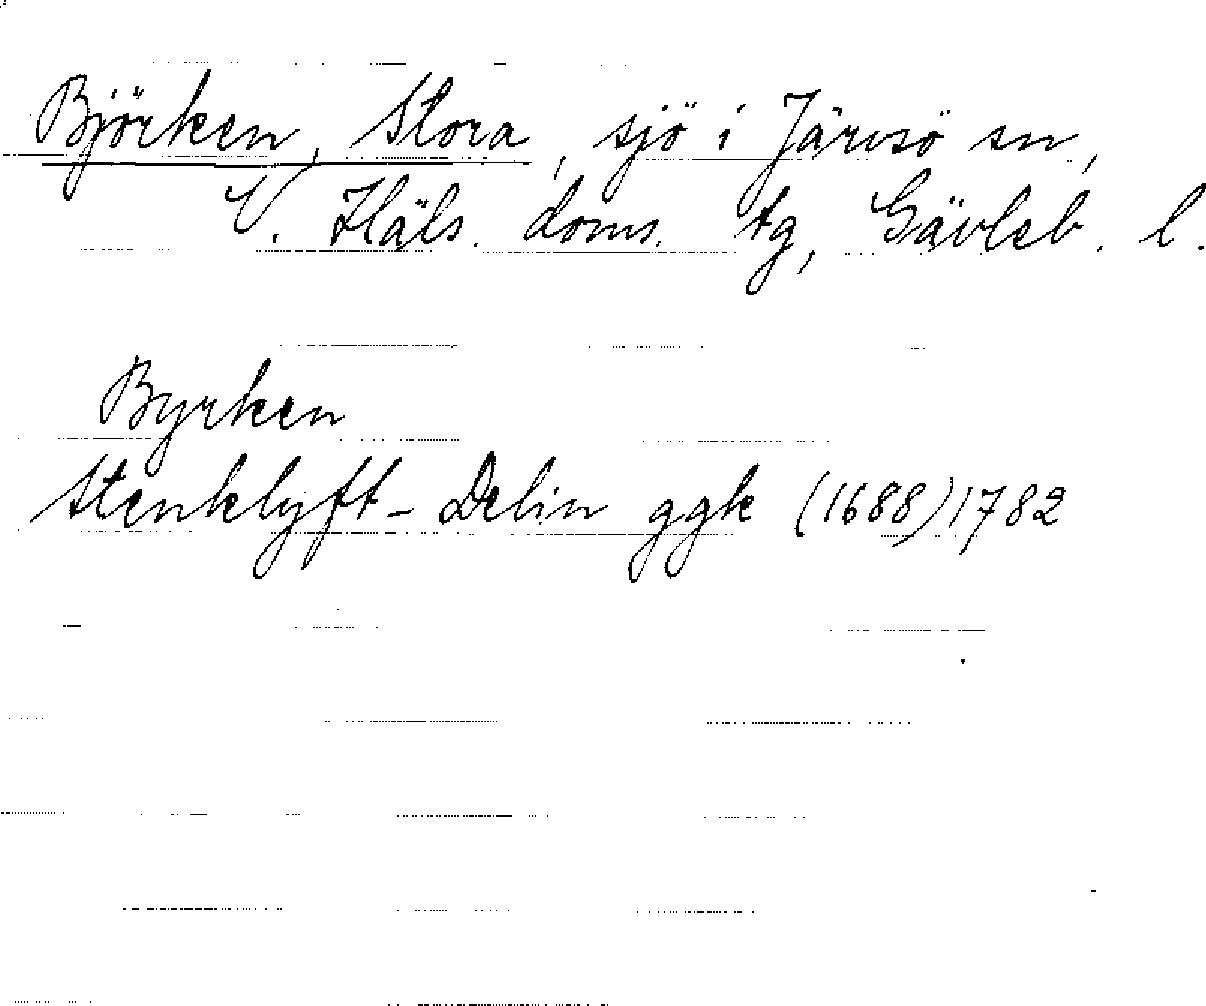 Björken, Stora, sjö i Järvsö sn,
V. Häls. doms. tg, Gävleb. l.
Byrken
Stenklyft - Delin ggk (1688) 1782